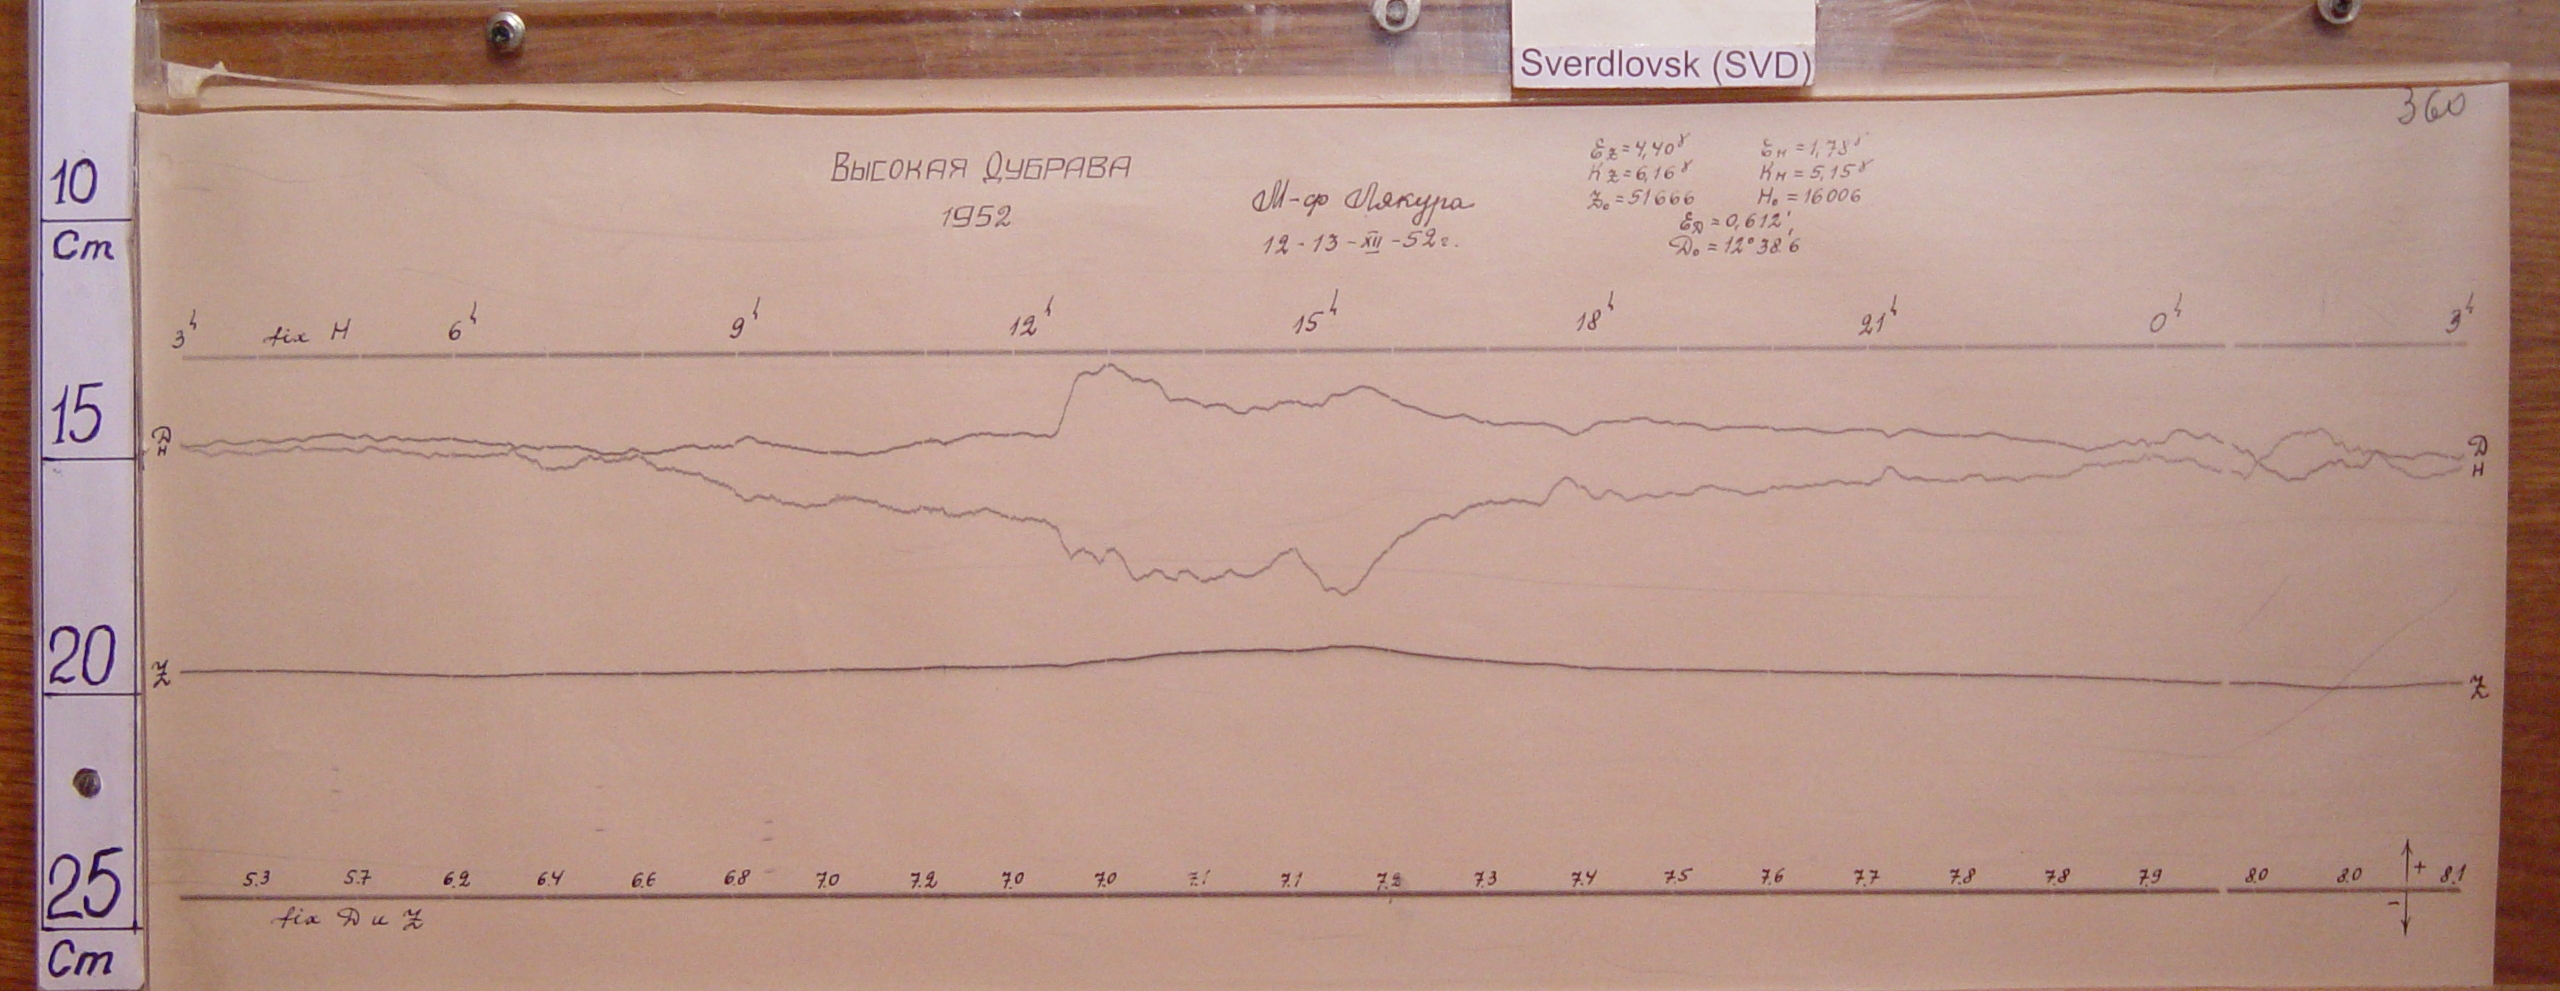 Sverdlovsk (SVD)
360
ВЫСОКАЯ ДУБРАВА
1952
М-ф Лякура
12-13-XII-52г.
Ez=4,40γ Eн=1,78γ
Kz=6,16γ Kн=5,15γ
Z₀=51666 H₀=16006
EД=0,612'
Д₀=12°38.6
10
Cm
15
20
25
Cm
3ʰ fix H 6ʰ 9ʰ 12ʰ 15ʰ 18ʰ 21ʰ 0ʰ 3ʰ
Д Д
H H
Z Z
5.3 5.7 6.2 6.4 6.6 6.8 7.0 7.2 7.0 7.0 7.1 7.1 7.2 7.3 7.4 7.5 7.6 7.7 7.8 7.8 7.9 8.0 8.0 + 8.1
-
fix Д и Z